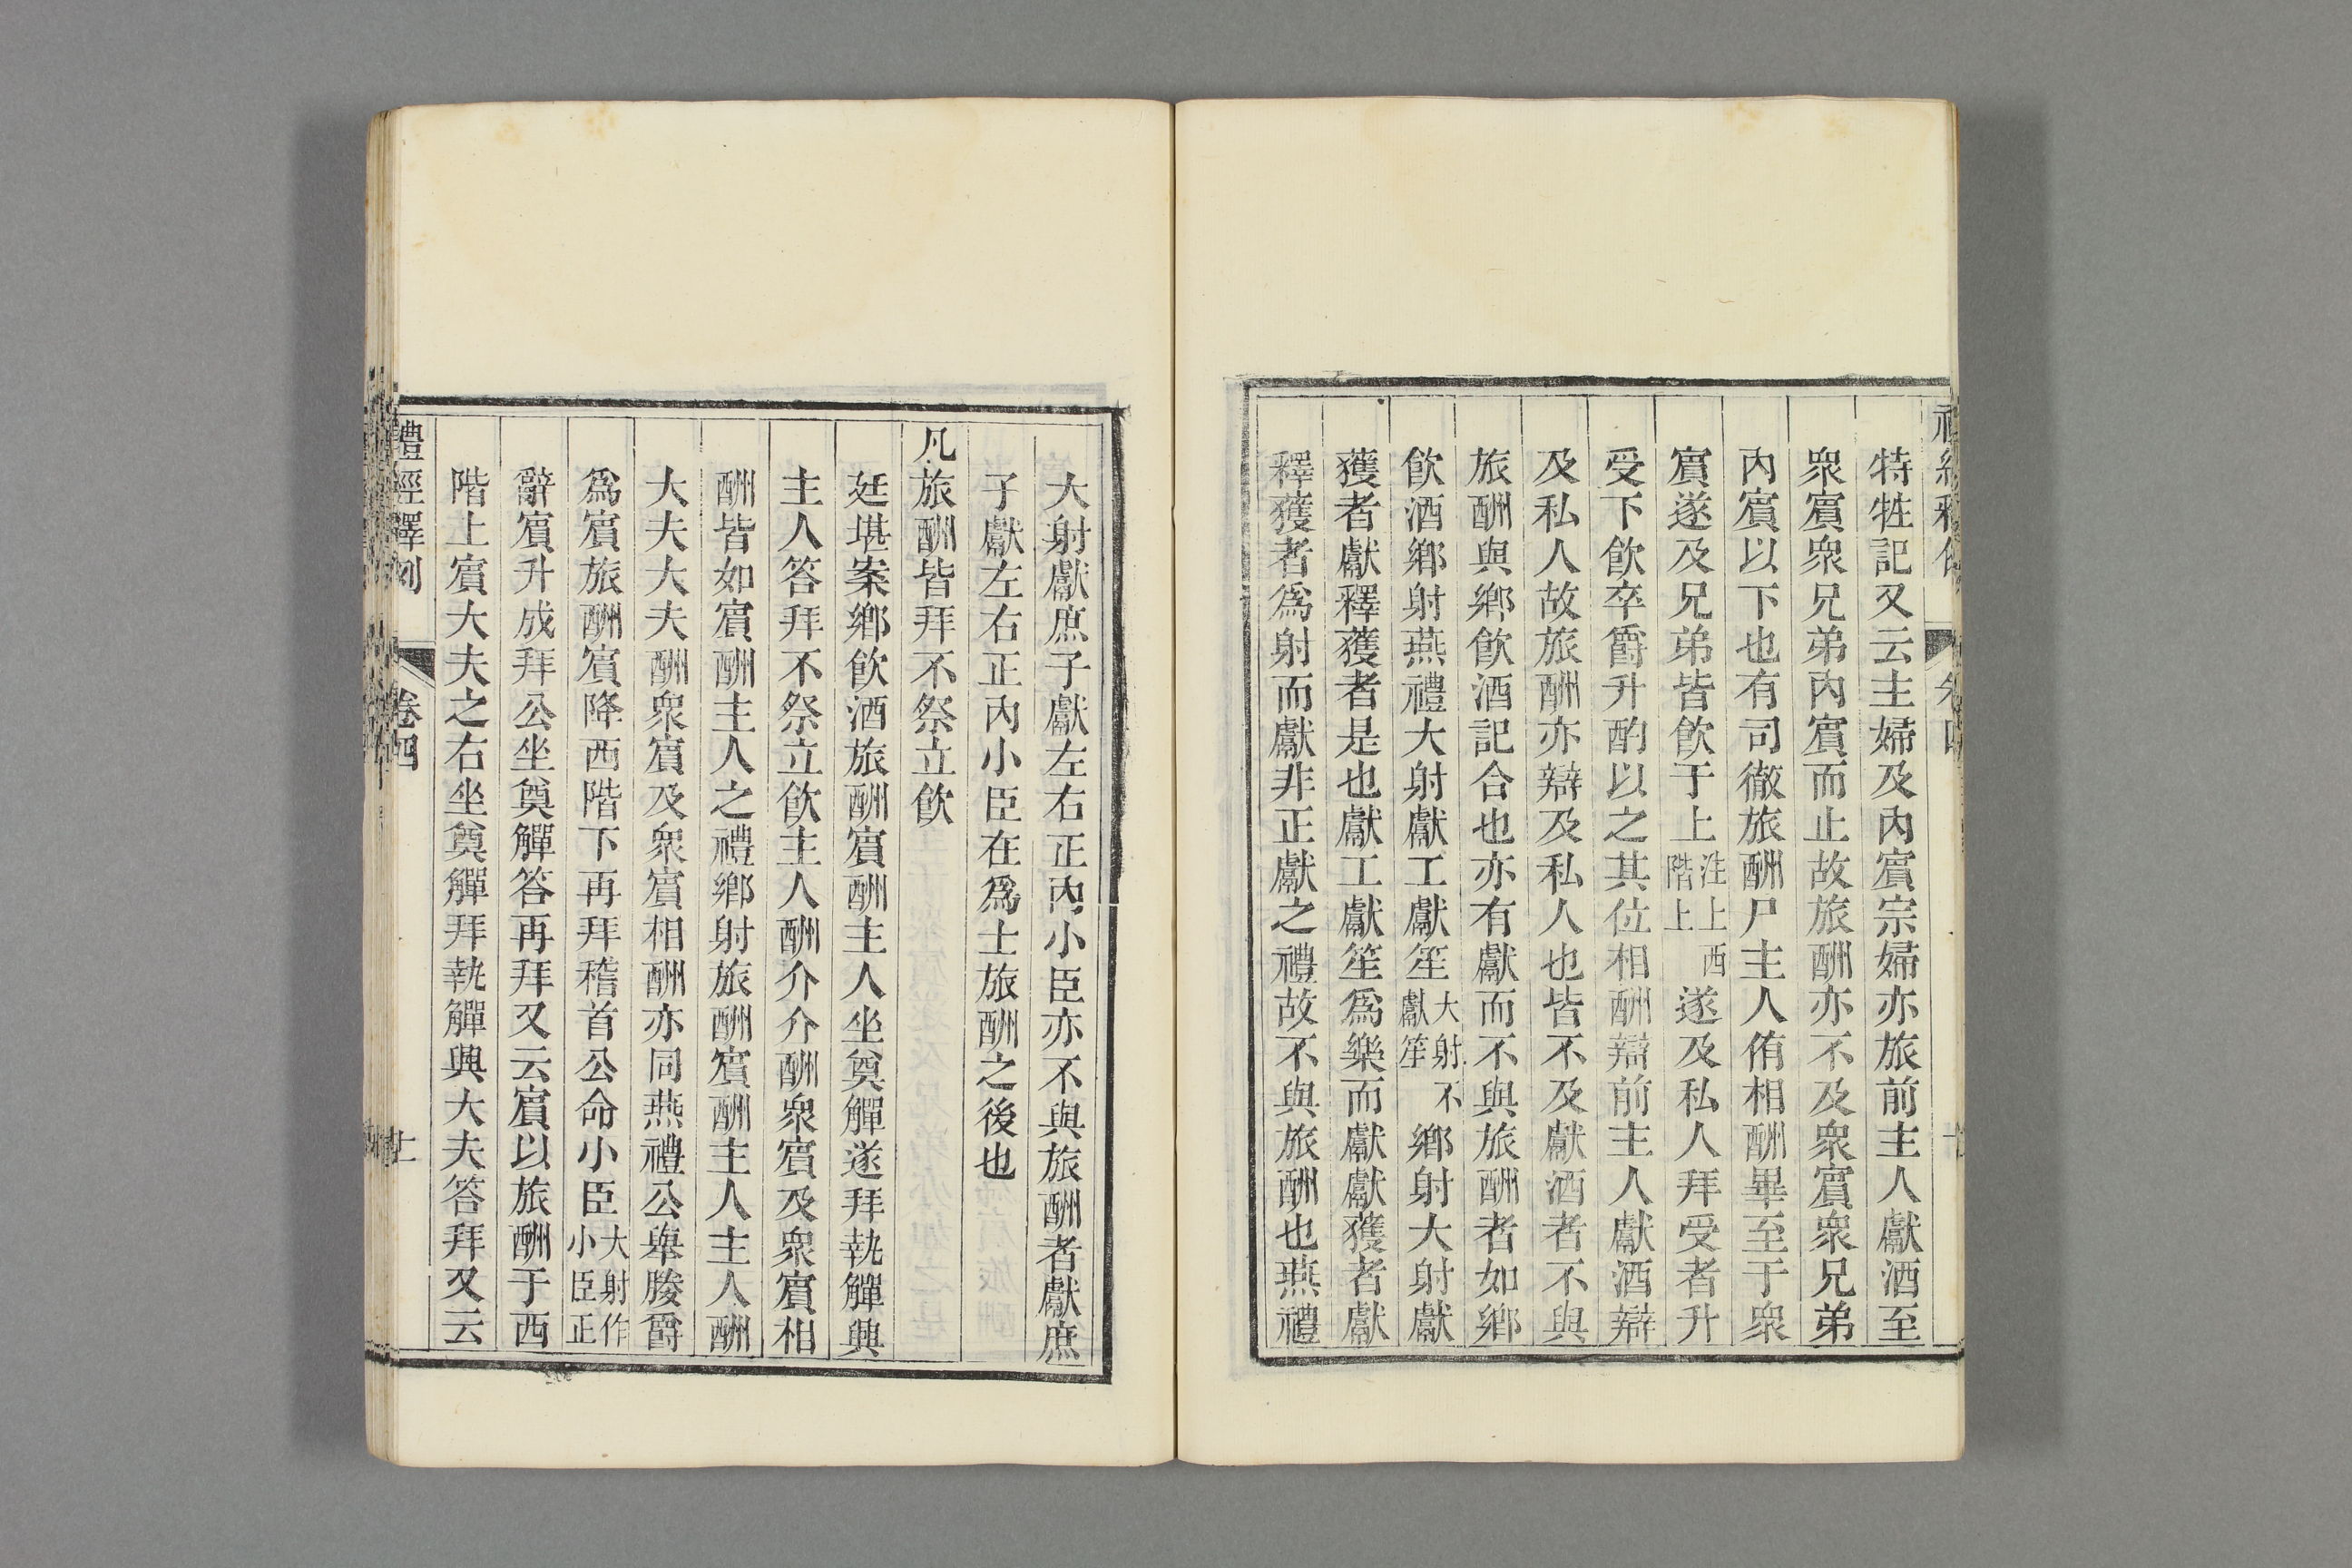 特牲記又云主婦及內賓宗婦亦旅前主人獻酒至
衆賓衆兄弟內賓而止故旅酬亦不及衆賓衆兄弟
內賓以下也有司徹旅酬尸主人侑相酬畢至于衆
賓遂及兄弟皆飲于上注上西階上遂及私人拜受者升
受下飲卒爵升酌以之其位相酬辯前主人獻酒辯
及私人故旅酬亦辯及私人也皆不及獻酒者不與
旅酬與鄉飲酒記合也亦有獻而不與旅酬者如鄉
飲酒鄉射燕禮大射獻工獻笙大射不獻笙鄉射大射獻
獲者獻釋獲者是也獻工獻笙爲樂而獻獻獲者獻
釋獲者爲射而獻非正獻之禮故不與旅酬也燕禮
大射獻庶子獻左右正內小臣亦不與旅酬者獻庶
子獻左右正內小臣在爲士旅酬之後也
凡旅酬皆拜不祭立飲
廷堪案鄉飲酒旅酬賓酬主人坐奠觶遂拜執觶興
主人答拜不祭立飲主人酬介介酬衆賓及衆賓相
酬皆如賓酬主人之禮鄉射旅酬賓酬主人主人酬
大夫大夫酬衆賓及衆賓相酬亦同燕禮公舉媵爵
爲賓旅酬賓降西階下再拜稽首公命小臣大射作小臣正
辭賓升成拜公坐奠觶答再拜又云賓以旅酬于西
階上賓大夫之右坐奠觶拜執觶興大夫答拜又云
禮經釋例 卷四